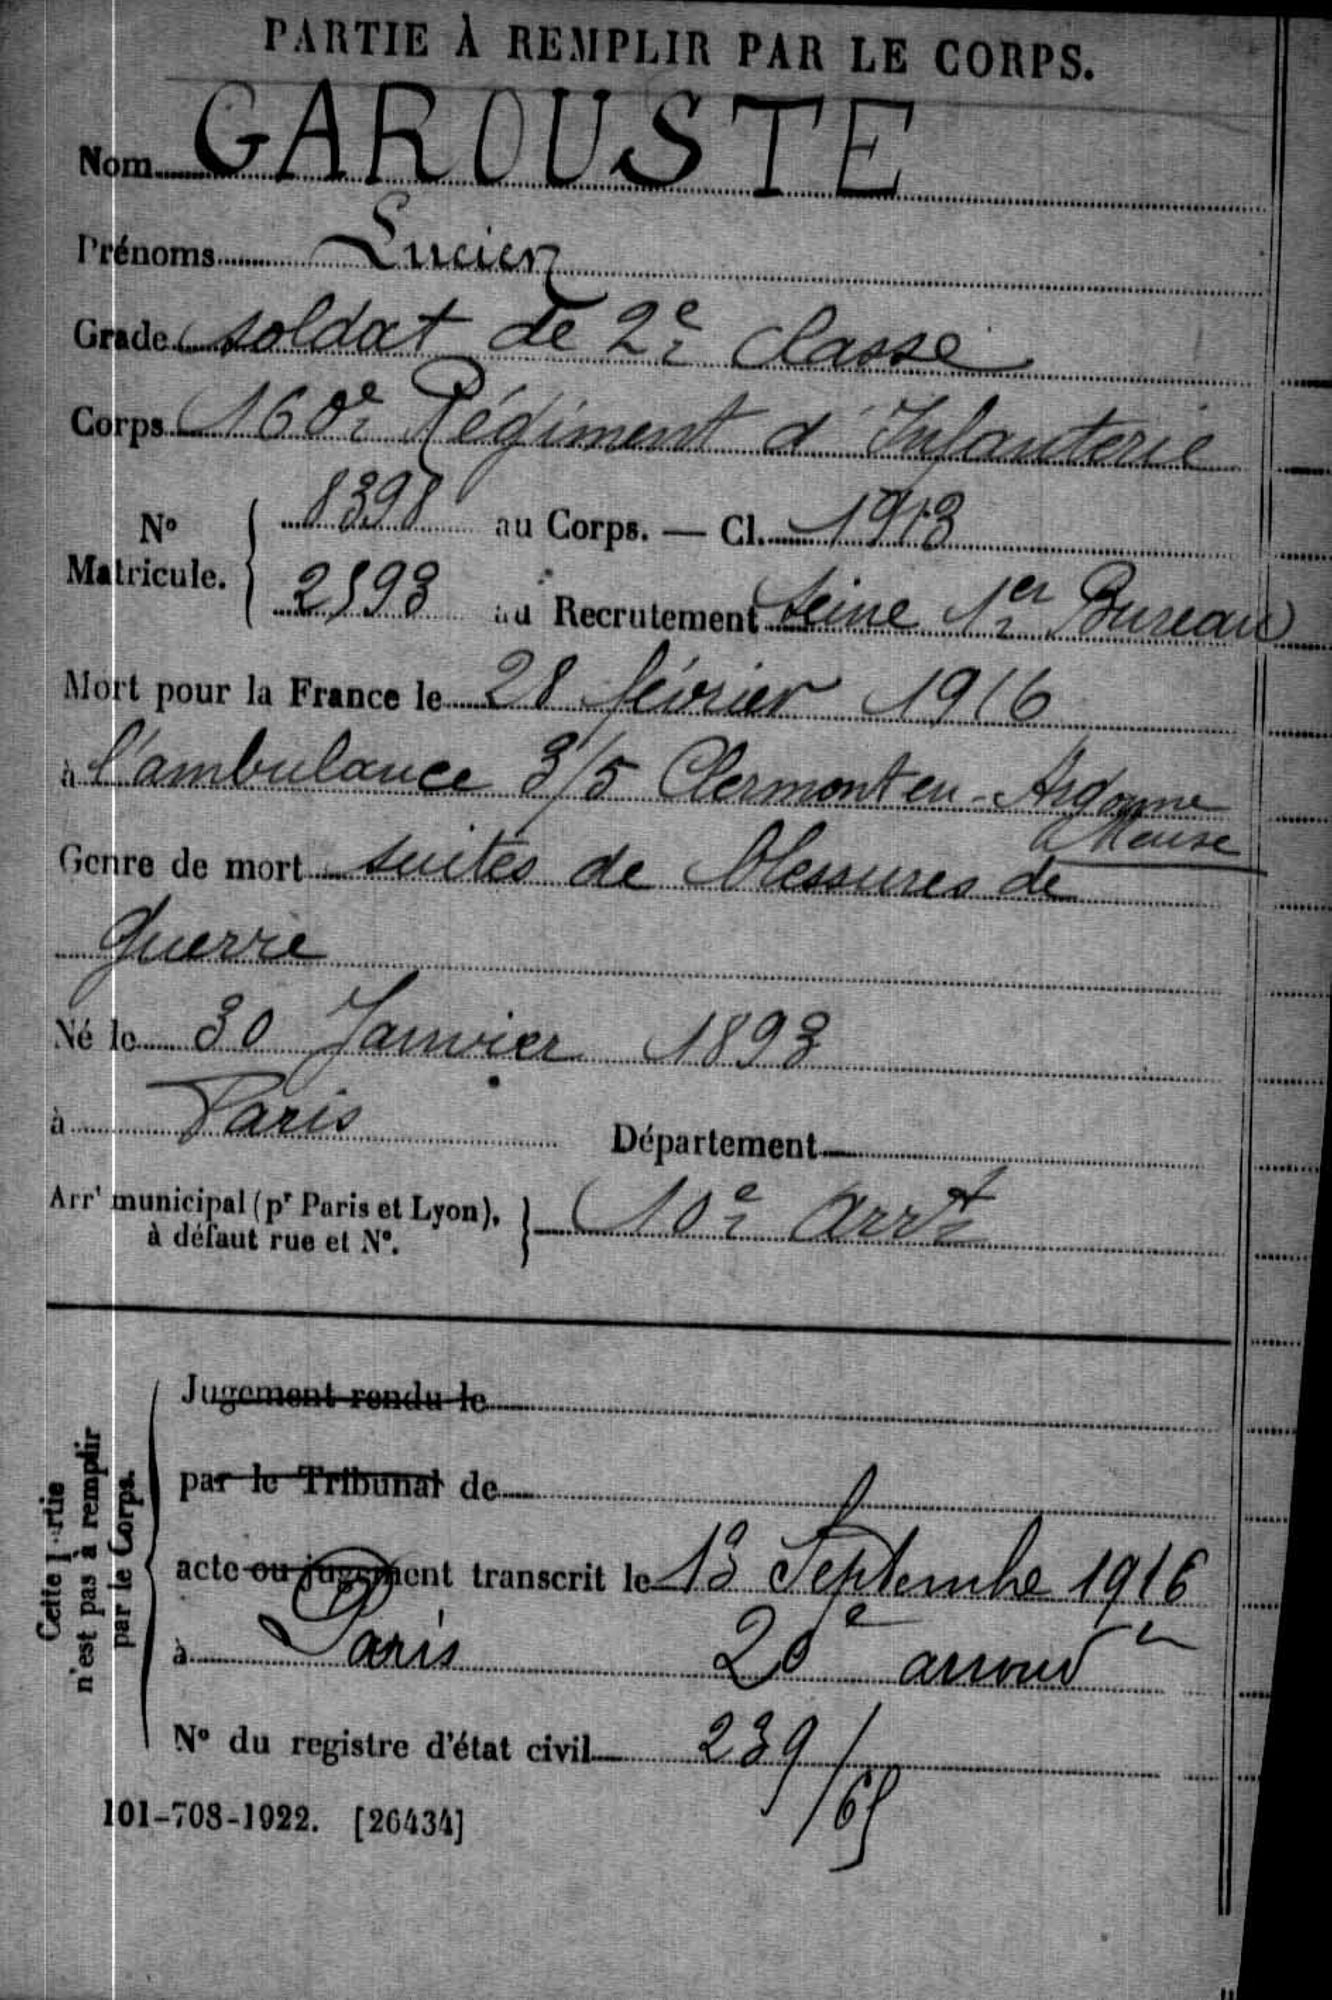 PARTIE À REMPLIR PAR LE CORPS.
Nom GAROUSTE
Prénoms Lucien
Grade soldat de 2e classe
Corps 160e Régiment d'Infanterie
No Matricule. { 8398 au Corps. — Cl. 1913
2593 au Recrutement Seine 1er Bureau
Mort pour la France le 28 février 1916
à l'ambulance 3/5 Clermont en-Argonne
Meuse
Genre de mort suites de blessures de
guerre
Né le 30 Janvier 1893
à Paris Département
Arrt municipal (pr Paris et Lyon), à défaut rue et No. } 10e arrt
Cette Partie n'est pas à remplir par le Corps.
Jugement rendu le
par le Tribunal de
acte ou jugement transcrit le 13 Septembre 1916
à Paris 20e arrond
No du registre d'état civil 239/65
101-708-1922. [26434]